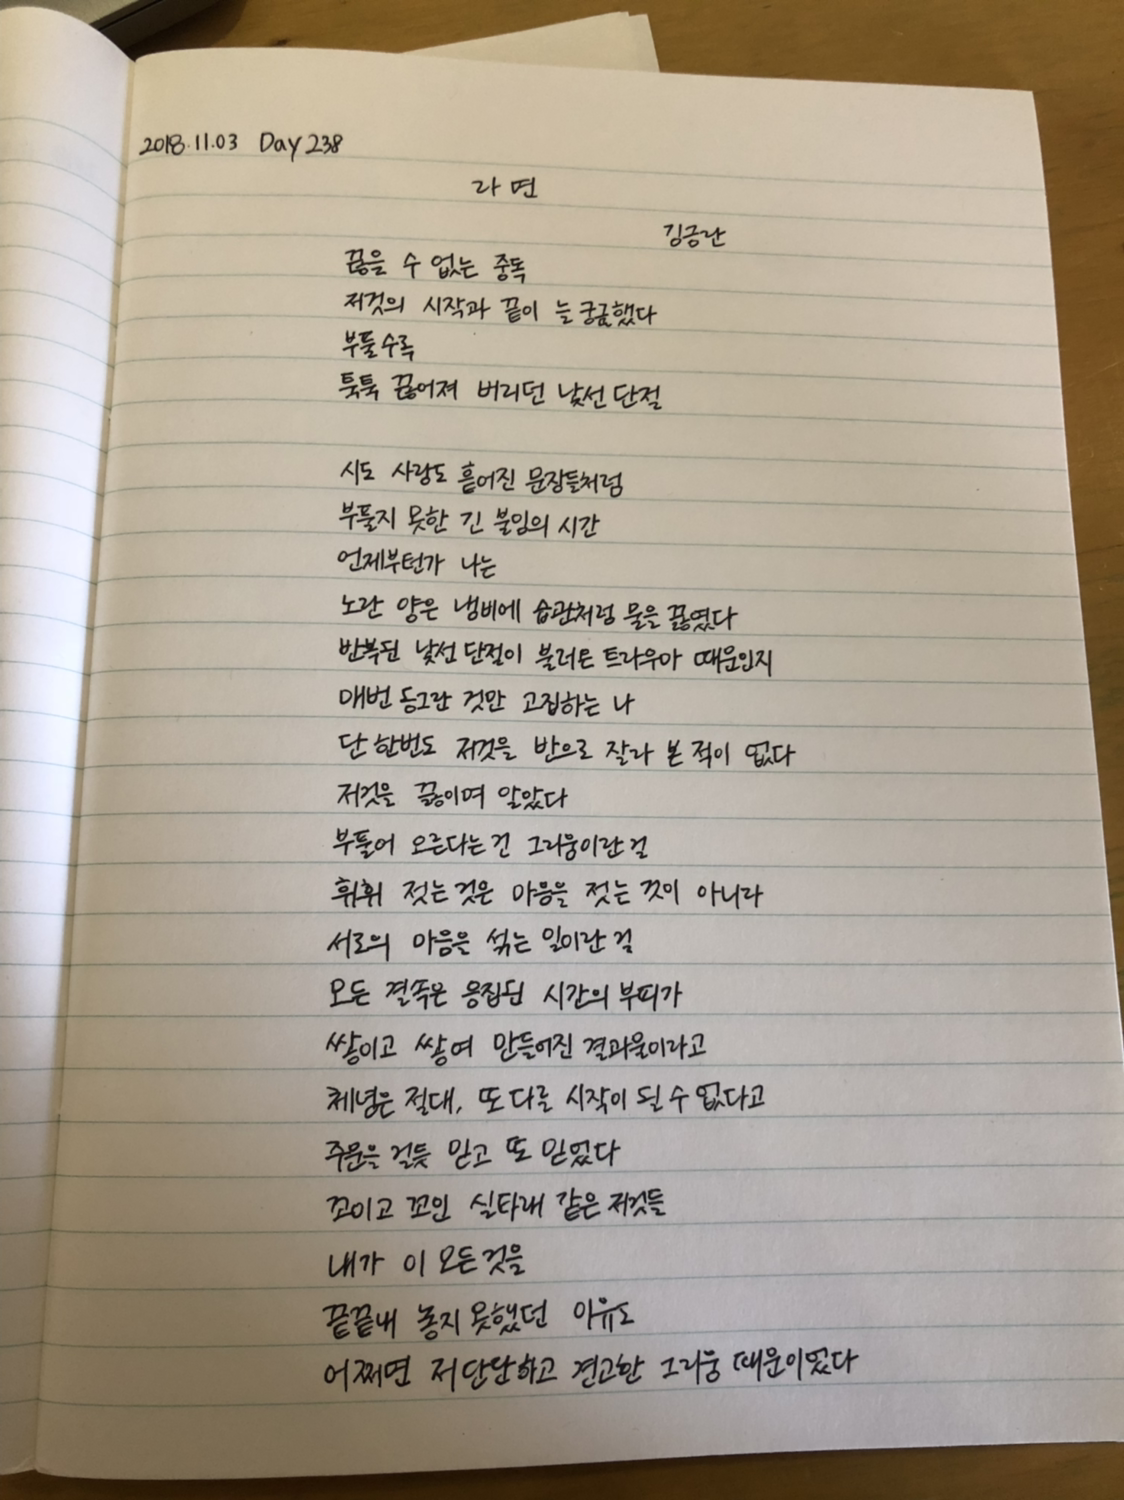 2018.11.03 Day 238
라면
김금란
끊을 수 없는 중독
저것의 시작과 끝이 늘 궁금했다
부풀수록
툭툭 끊어져 버리던 낯선 단절
시도 사랑도 흩어진 문장들처럼
부풀지 못한 긴 불임의 시간
언제부턴가 나는
노란 양은 냄비에 습관처럼 물을 끓였다
반복된 낯선 단절이 불러온 트라우마 때문인지
매번 동그란 것만 고집하는 나
단 한번도 저것을 반으로 잘라 본 적이 없다
저것을 끓이며 알았다
부풀어 오른다는 건 그리움이란 걸
휘휘 젓는 것은 마음을 젓는 것이 아니라
서로의 마음을 섞는 일이란 걸
모든 결속은 응집된 시간의 부피가
쌓이고 쌓여 만들어진 결과물이라고
체념은 절대, 또 다른 시작이 될 수 없다고
주문을 걸듯 믿고 또 믿었다
꼬이고 꼬인 실타래 같은 저것들
내가 이 모든 것을
끝끝내 놓지 못했던 이유도
어쩌면 저 단단하고 견고한 그리움 때문이었다